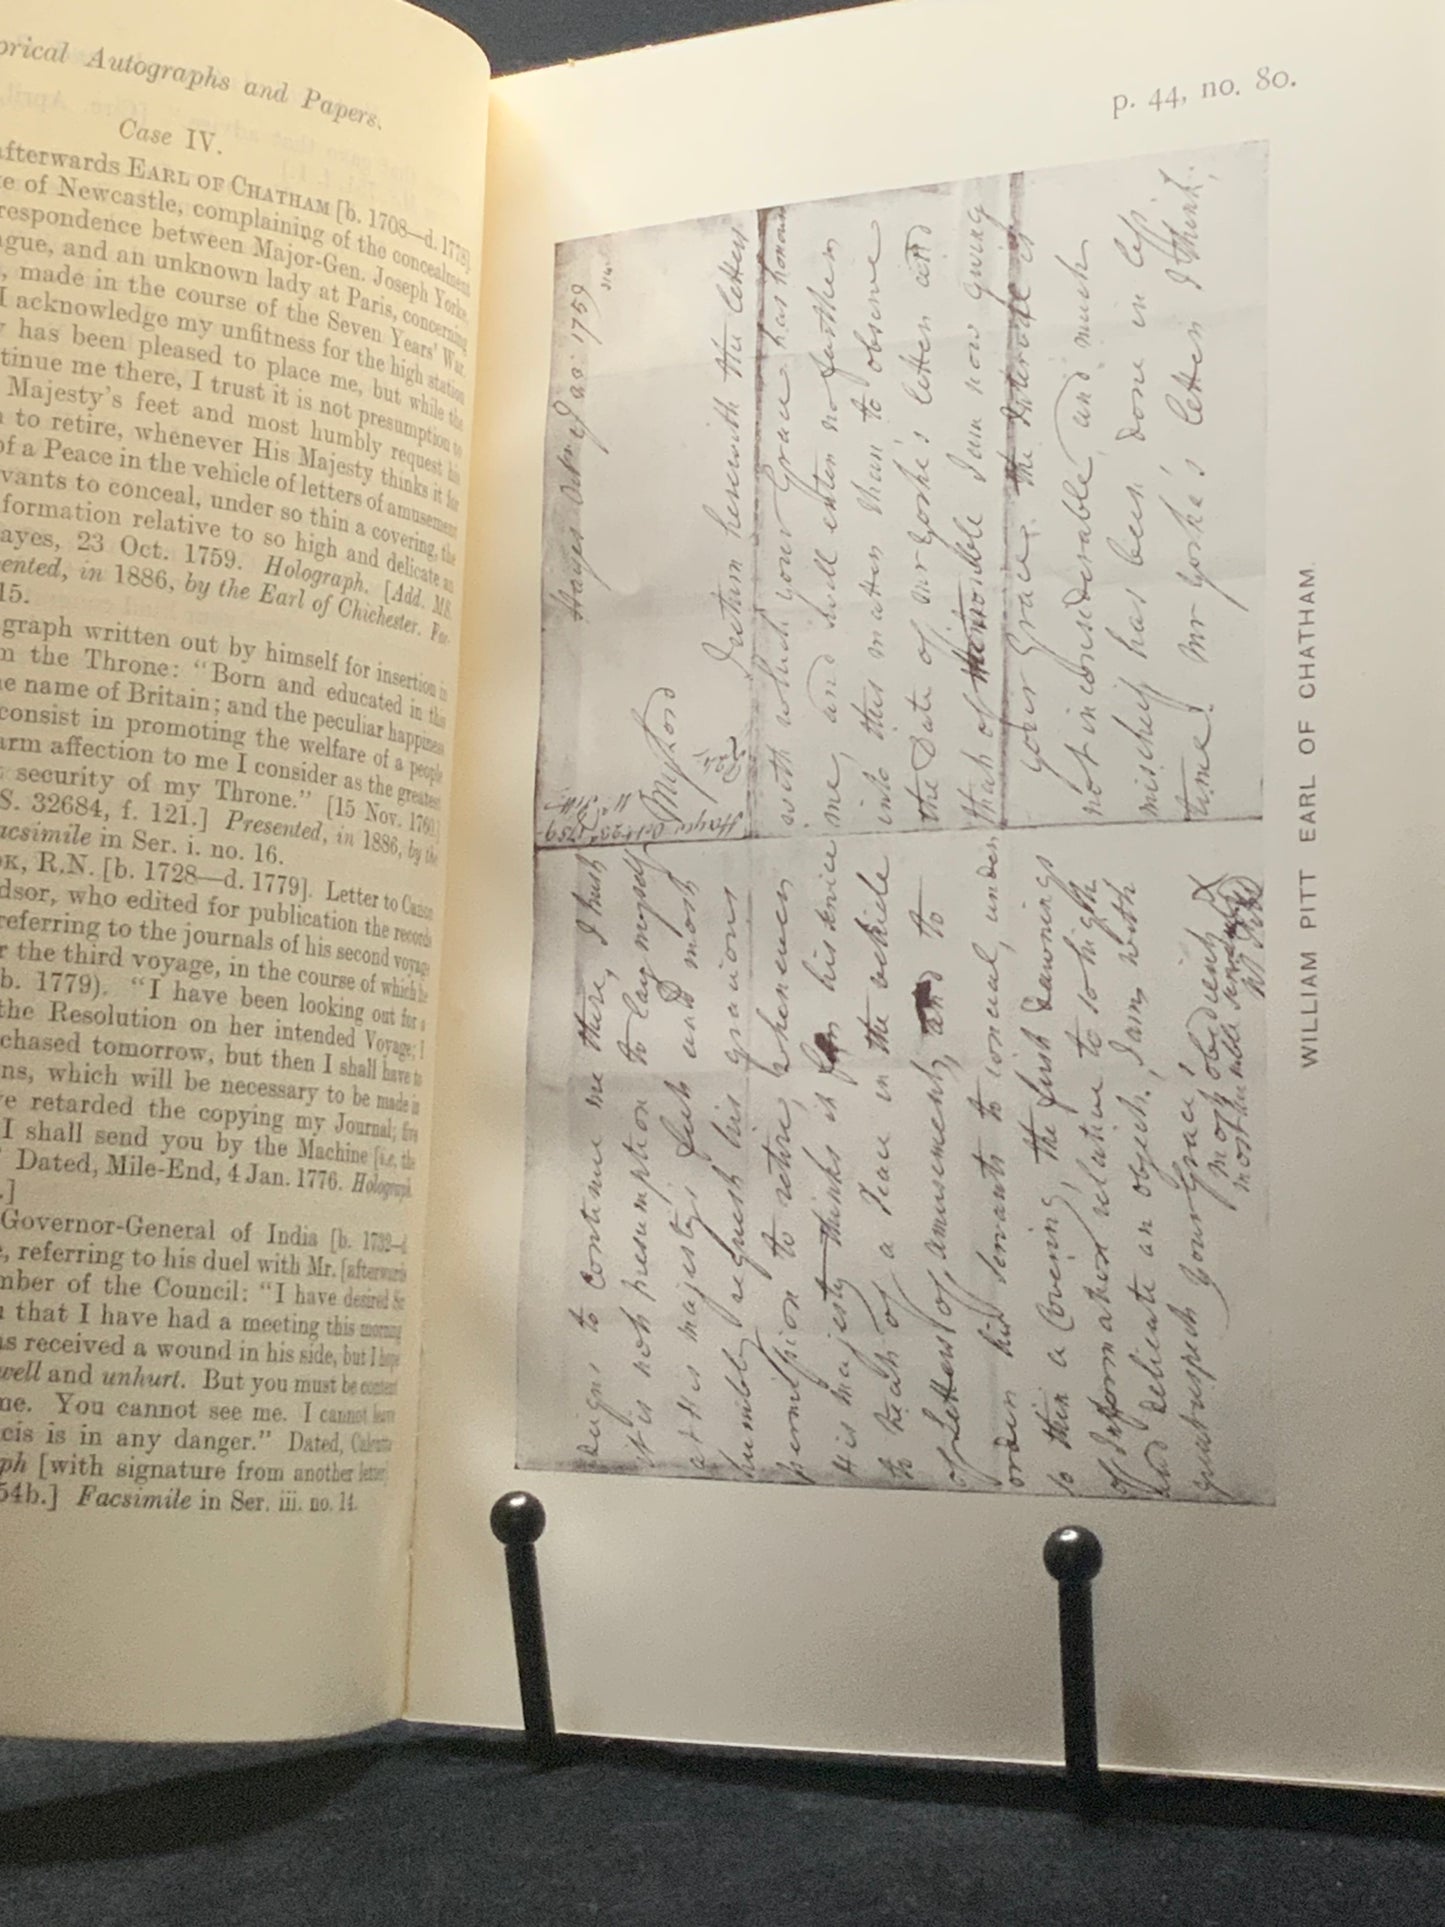 orical Autographs and Papers.
Case IV.
afterwards EARL OF CHATHAM [b. 1708—d. 1778].
e of Newcastle, complaining of the concealment
respondence between Major-Gen. Joseph Yorke,
ague, and an unknown lady at Paris, concerning
, made in the course of the Seven Years' War.
I acknowledge my unfitness for the high station
y has been pleased to place me, but while the
tinue me there, I trust it is not presumption to
Majesty's feet and most humbly request his
n to retire, whenever His Majesty thinks it for
of a Peace in the vehicle of letters of amusement
vants to conceal, under so thin a covering, the
formation relative to so high and delicate an
ayes, 23 Oct. 1759. Holograph. [Add. MS.
ented, in 1886, by the Earl of Chichester. Fac-
15.
graph written out by himself for insertion in
m the Throne: "Born and educated in this
e name of Britain; and the peculiar happiness
consist in promoting the welfare of a people
arm affection to me I consider as the greatest
security of my Throne." [15 Nov. 1760.]
S. 32684, f. 121.] Presented, in 1886, by the
acsimile in Ser. i. no. 16.
OK, R.N. [b. 1728—d. 1779]. Letter to Canon
dsor, who edited for publication the records
referring to the journals of his second voyage
r the third voyage, in the course of which he
b. 1779). "I have been looking out for a
the Resolution on her intended Voyage; I
chased tomorrow, but then I shall have to
ns, which will be necessary to be made in
ve retarded the copying my Journal; five
I shall send you by the Machine [i.e. the
Dated, Mile-End, 4 Jan. 1776. Holograph.
.]
Governor-General of India [b. 1732—d.
e, referring to his duel with Mr. [afterwards
mber of the Council: "I have desired Sir
n that I have had a meeting this morning
as received a wound in his side, but I hope
well and unhurt. But you must be content
me. You cannot see me. I cannot leave
cis is in any danger." Dated, Calcutta
ph [with signature from another letter]
54b.] Facsimile in Ser. iii. no. 14.
p. 44, no. 80.
Hayes Octr 1759
My Lord
I return herewith the letters
with which your Grace has honour
me, and will enter no farther
into this matter than to observe
the Date of Mr Yorke's letter and
that of the I am now giving
your Grace. the Interval is
not inconsiderable, and much
mischief has been done in less
time. Mr Yorke's letter I think,
deigns to continue me there, I trust
it is not presumption to lay myself
at His majesty's feet and most
humbly request his gracious
permission to retire, whenever
His majesty thinks it for his service
to treat of a Peace in the vehicle
of Letters of amusement, and to
order his servants to conceal, under
so thin a Covering, the first dawnings
of Information relative to so high
and delicate an object. I am with
great respect Your Grace's
most obedient &
most humble servant
W Pitt
WILLIAM PITT EARL OF CHATHAM